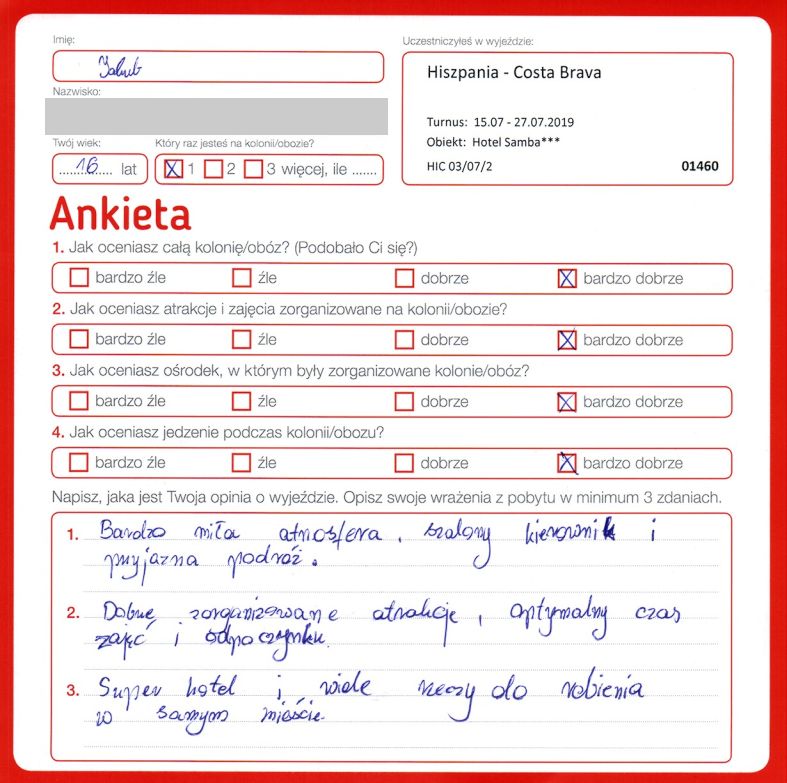 Imię:
Jakub
Uczestniczyłeś w wyjeździe:
Hiszpania - Costa Brava
Nazwisko:
Turnus: 15.07 - 27.07.2019
Obiekt: Hotel Samba***
HIC 03/07/2 01460
Twój wiek: Który raz jesteś na kolonii/obozie?
16 lat X 1 2 3 więcej, ile .......
Ankieta
1. Jak oceniasz całą kolonię/obóz? (Podobało Ci się?)
bardzo źle źle dobrze X bardzo dobrze
2. Jak oceniasz atrakcje i zajęcia zorganizowane na kolonii/obozie?
bardzo źle źle dobrze X bardzo dobrze
3. Jak oceniasz ośrodek, w którym były zorganizowane kolonie/obóz?
bardzo źle źle dobrze X bardzo dobrze
4. Jak oceniasz jedzenie podczas kolonii/obozu?
bardzo źle źle dobrze X bardzo dobrze
Napisz, jaka jest Twoja opinia o wyjeździe. Opisz swoje wrażenia z pobytu w minimum 3 zdaniach.
1. Bardzo miła atmosfera, szalony kierownik i
przyjazna podróż.
2. Dobrze zorganizowane atrakcje, optymalny czas
zajęć i odpoczynku.
3. Super hotel i wiele rzeczy do robienia
w samym mieście.